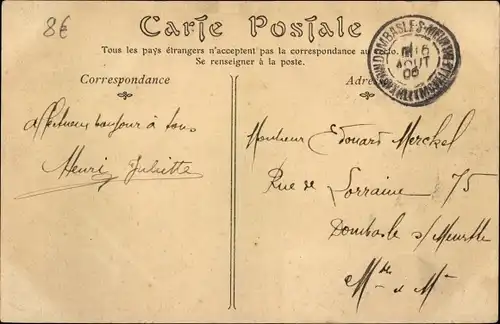 8€
Carte Postale
Tous les pays étrangers n'acceptent pas la correspondance au recto.
Se renseigner à la poste.
Correspondance
Adresse
DOMBASLE-S-MEURTHE
15
AOUT
06
Affectueux bonjour à tous
Henri Juliette
Monsieur Edouard Merckel
Rue de Lorraine 75
Dombasle s/ Meurthe
Mthe et Mlle